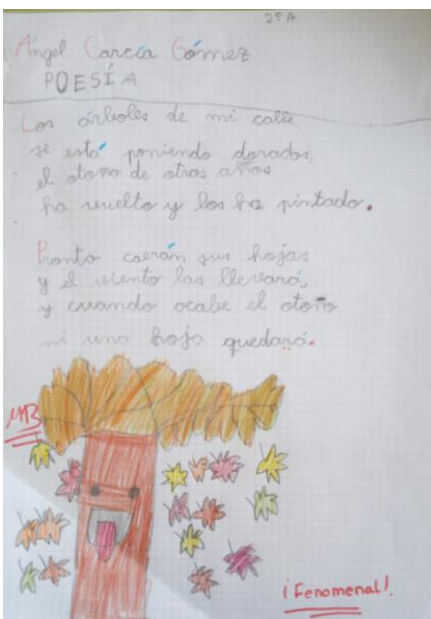 2º A
Ángel García Gómez
POESÍA
Los árboles de mi calle
se está poniendo dorados,
el otoño de otros años
ha vuelto y los ha pintado.
Pronto caerán sus hojas
y el viento las llevará
y cuando acabe el otoño
ni una hoja quedará.
MB
¡Fenomenal!